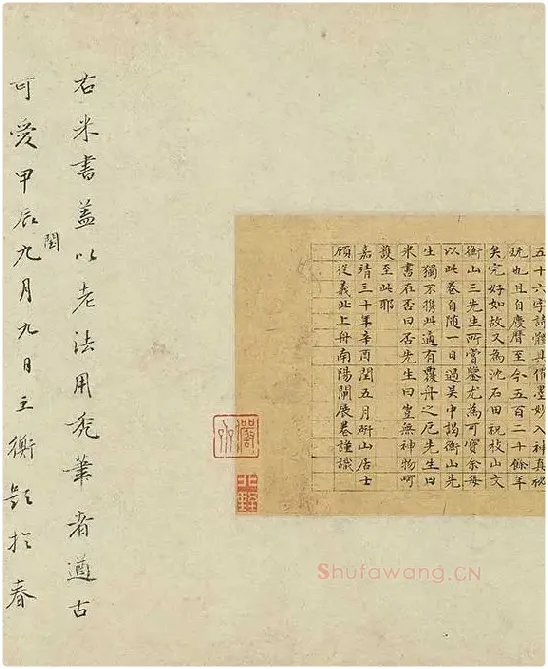 五十六字詩體具備墨妙入神真秘
玩也且自慶曆至今五百二十餘年
矣完好如故又為沈石田祝枝山文
衡山三先生所嘗鑒尤為可寶余每
以此卷自隨一日過吳中謁衡山先
生獨不携此適有覆舟之厄先生曰
米書在否曰否先生曰豈無神物呵
護至此耶
嘉靖三十年辛酉閏五月研山居士
顧從義北上舟南陽閘展卷謹識
右米書蓋以老法用禿筆者遒古
可愛甲辰閏九月九日王衡題於春
Shufawang.CN